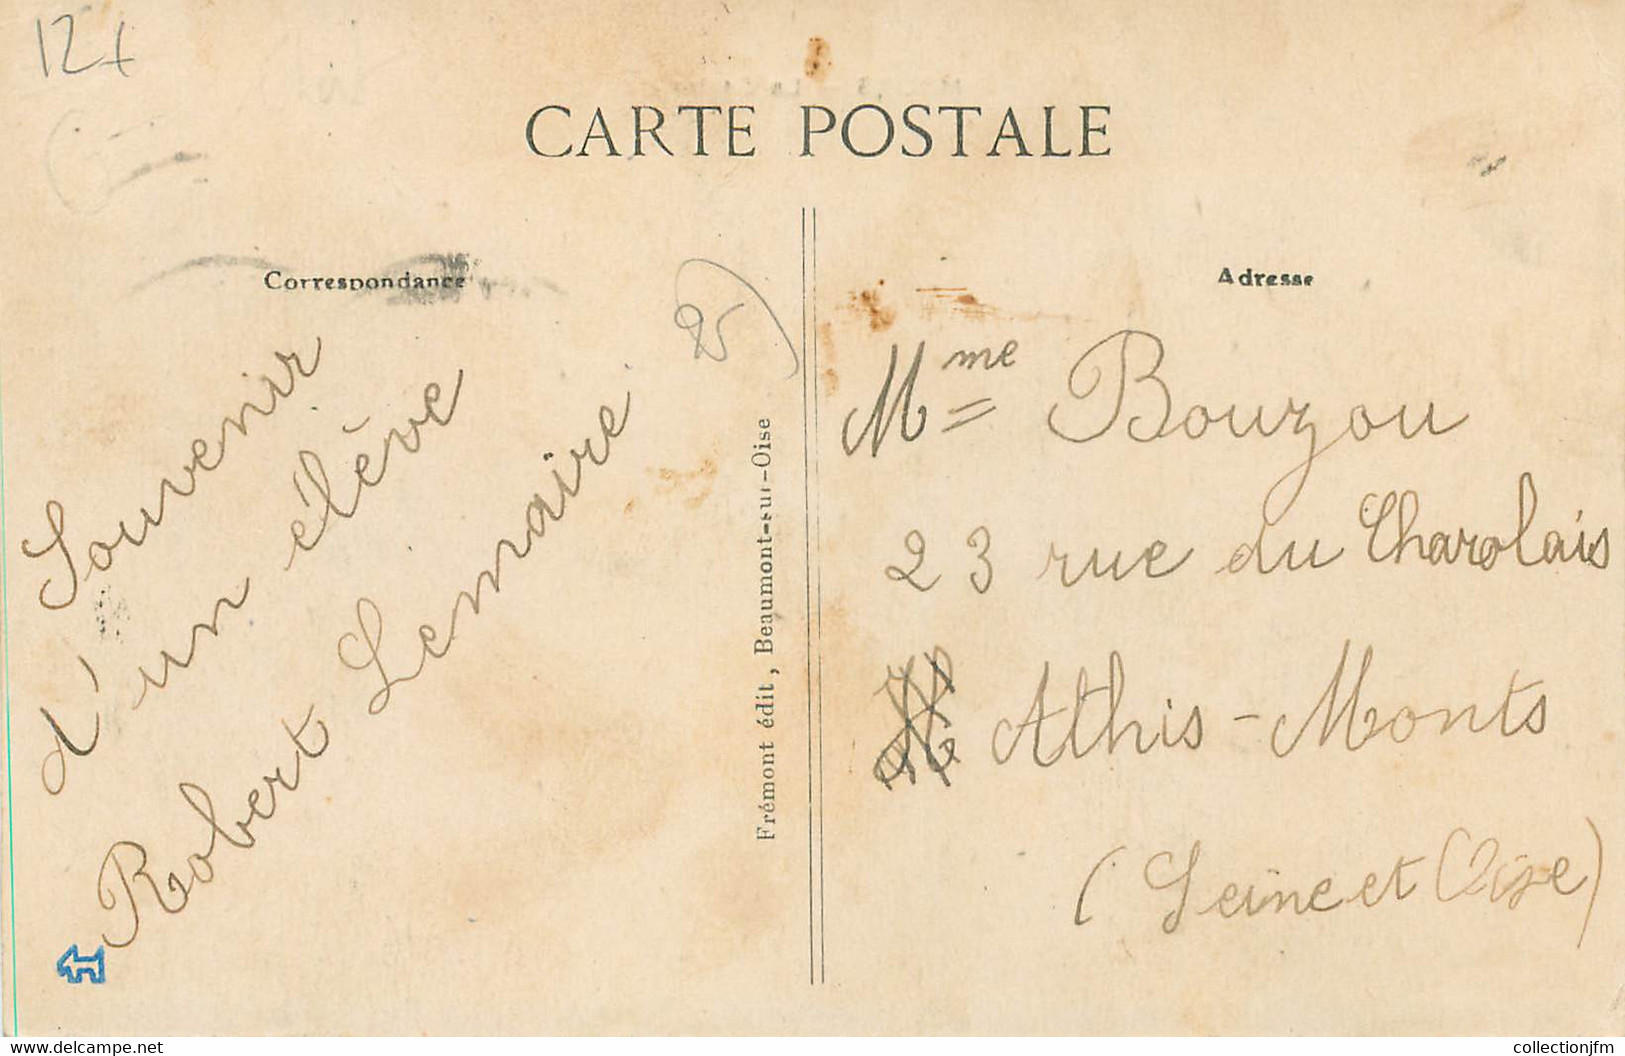 12
CARTE POSTALE
Correspondance
Adresse
Souvenir
d'un élève
Robert Lemaire
2)
Frémont édit, Beaumont-sur-Oise
Mme Bouzou
23 rue du Charolais
Athis-Monts
(Seine et Oise)
www.delcampe.net
collectionjfm